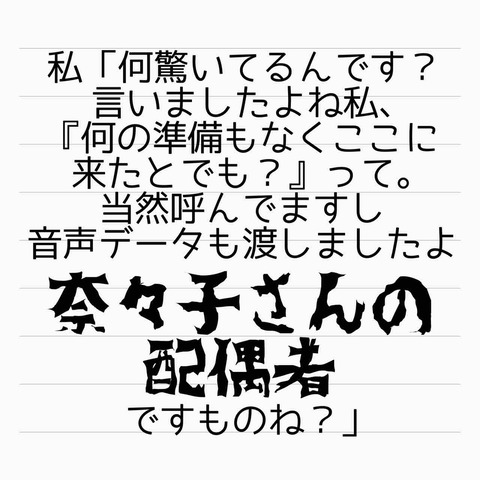 私「何驚いてるんです？
言いましたよね私、
『何の準備もなくここに
来たとでも？』って。
当然呼んでますし
音声データも渡しましたよ
奈々子さんの
配偶者
ですものね？」